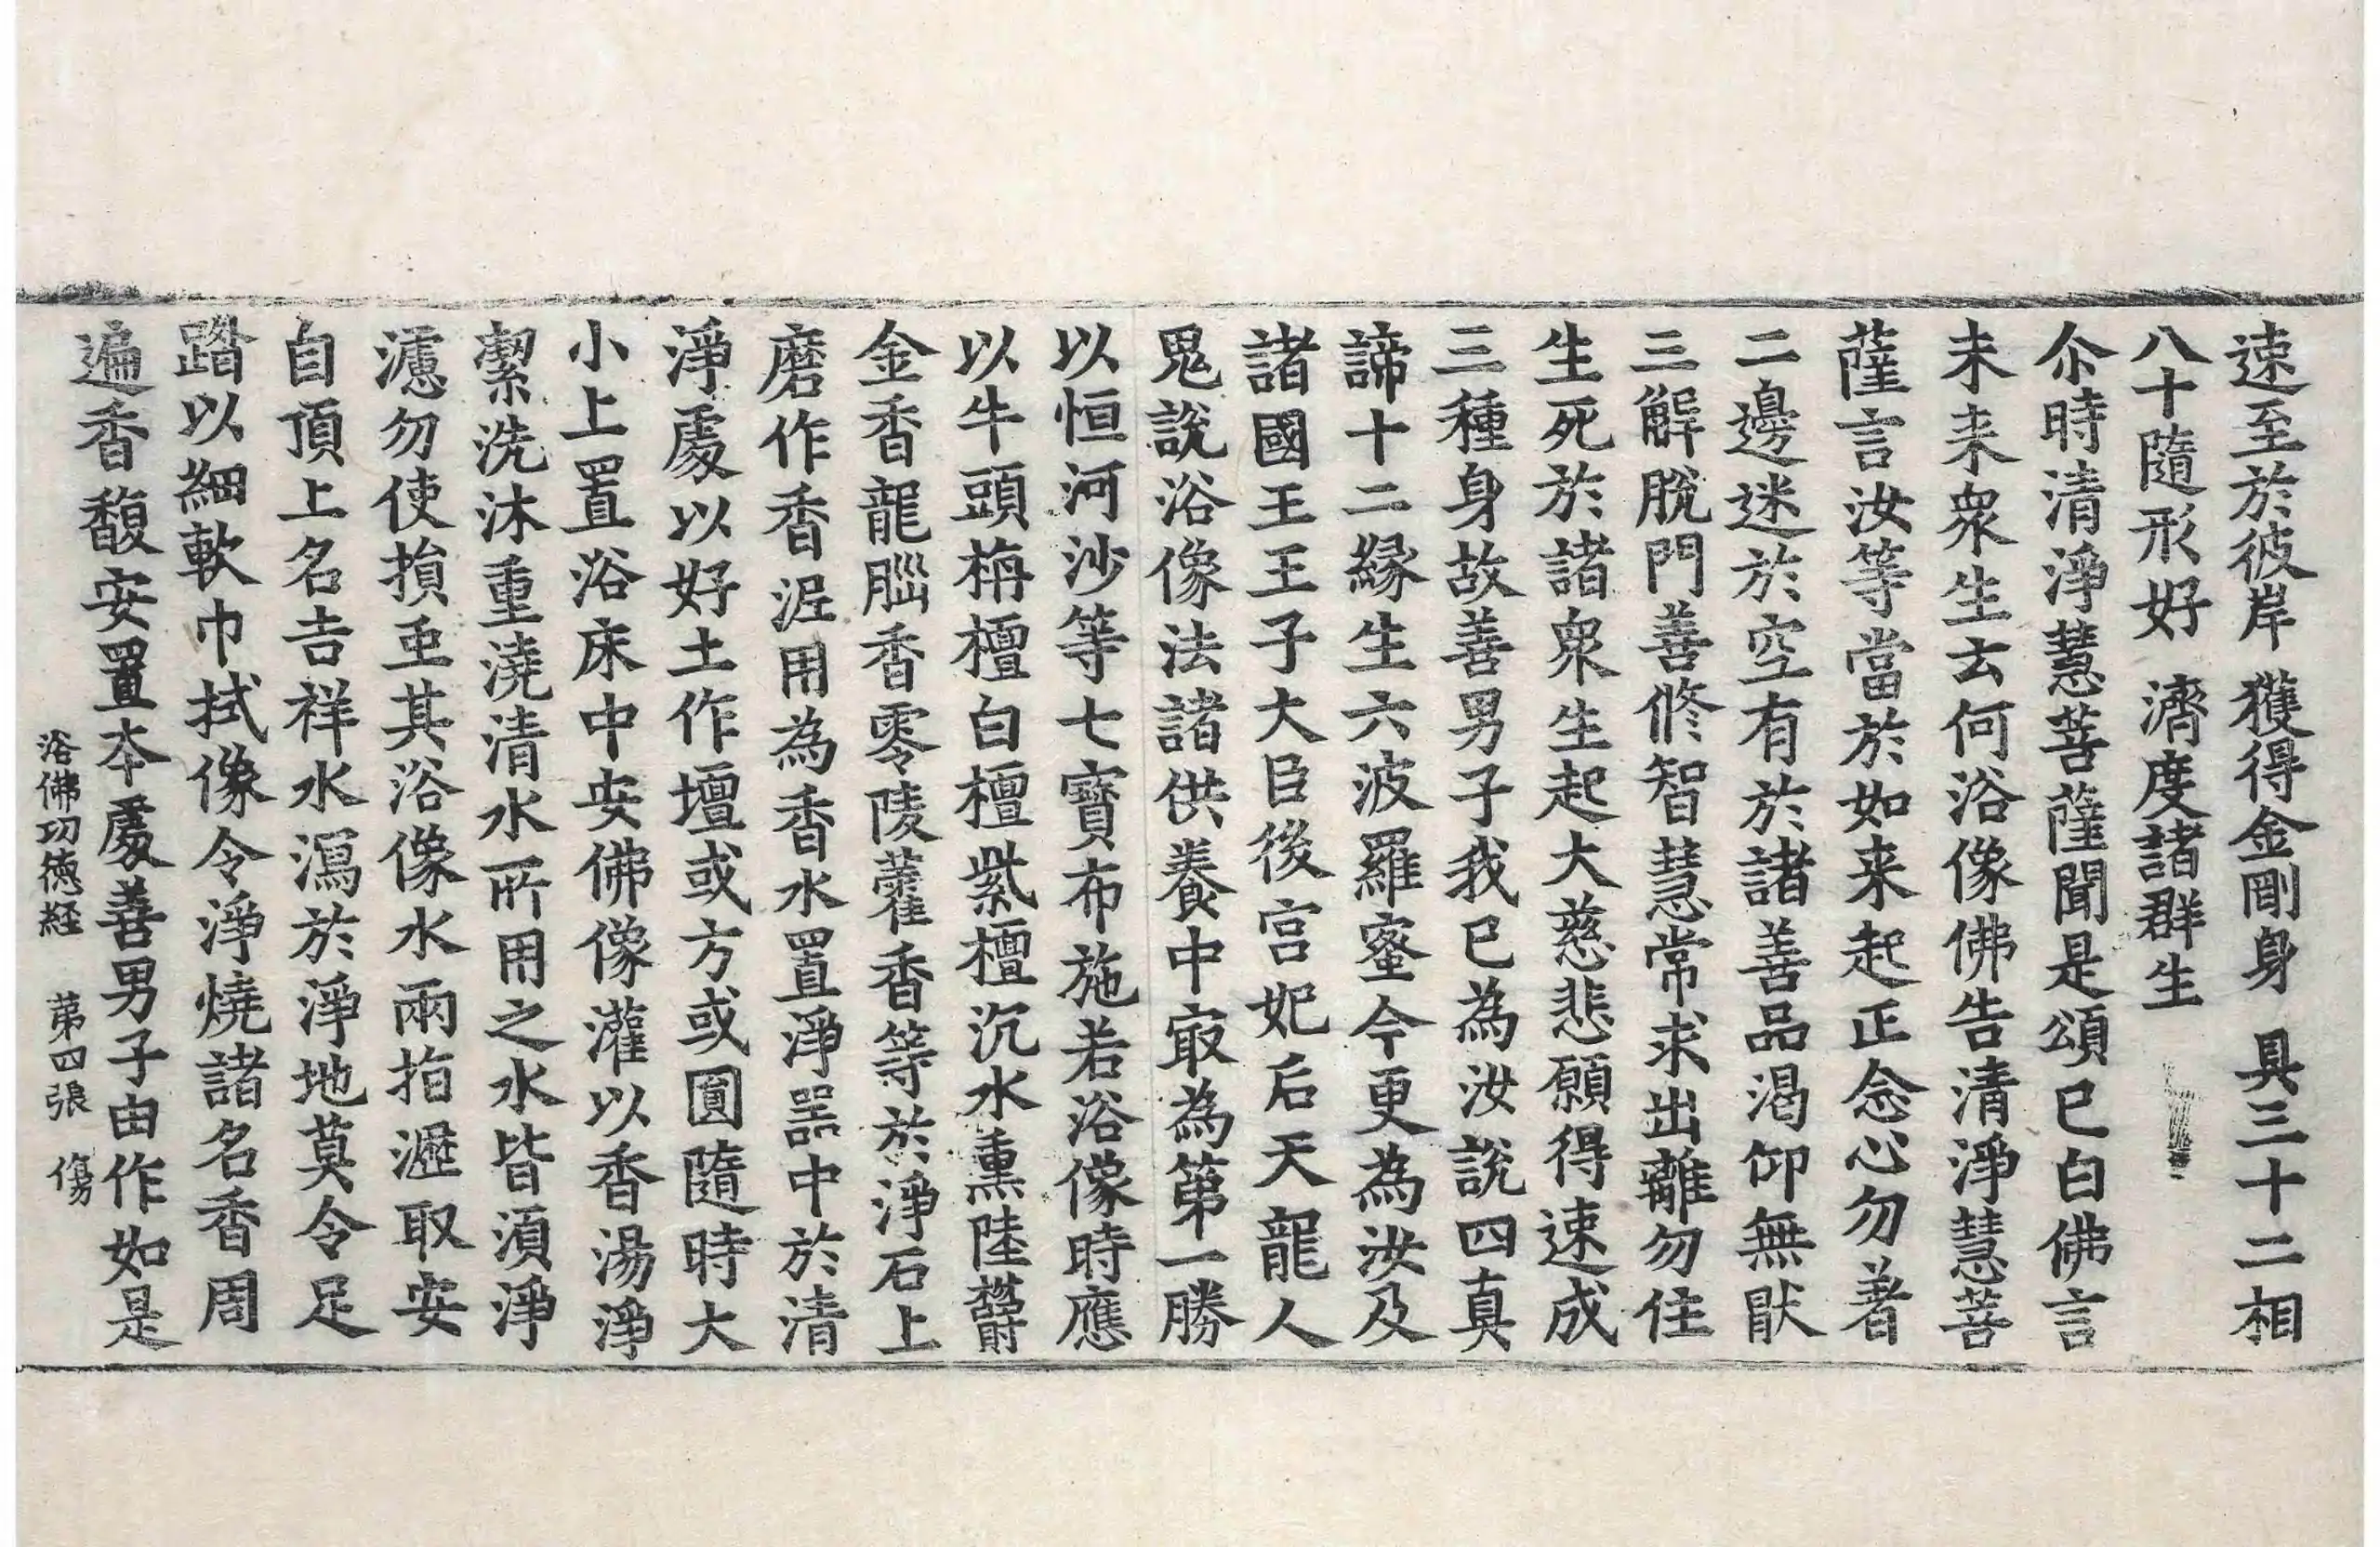 速至於彼岸 獲得金剛身 具三十二相
八十隨形好 濟度諸群生
尒時清淨慧菩薩聞是頌已白佛言
未来衆生云何浴像佛告清淨慧菩
薩言汝等當於如来起正念心勿著
二邊迷於空有於諸善品渴仰無猒
三解脫門善修智慧常求出離勿住
生死於諸衆生起大慈悲願得速成
三種身故善男子我已為汝說四真
諦十二緣生六波羅蜜今更為汝及
諸國王王子大臣後宮妃后天龍人
鬼說浴像法諸供養中㝡為第一勝
以恒河沙等七寶布施若浴像時應
以牛頭栴檀白檀紫檀沉水熏陸欝
金香龍腦香零陵藿香等於淨石上
磨作香泥用為香水置淨器中於清
淨處以好土作壇或方或圓隨時大
小上置浴床中安佛像灌以香湯淨
潔洗沐重澆清水所用之水皆須淨
濾勿使損虫其浴像水兩指瀝取安
自頂上名吉祥水瀉於淨地莫令足
蹈以細軟巾拭像令淨燒諸名香周
遍香馥安置本處善男子由作如是
浴佛功德経 苐四張 傷